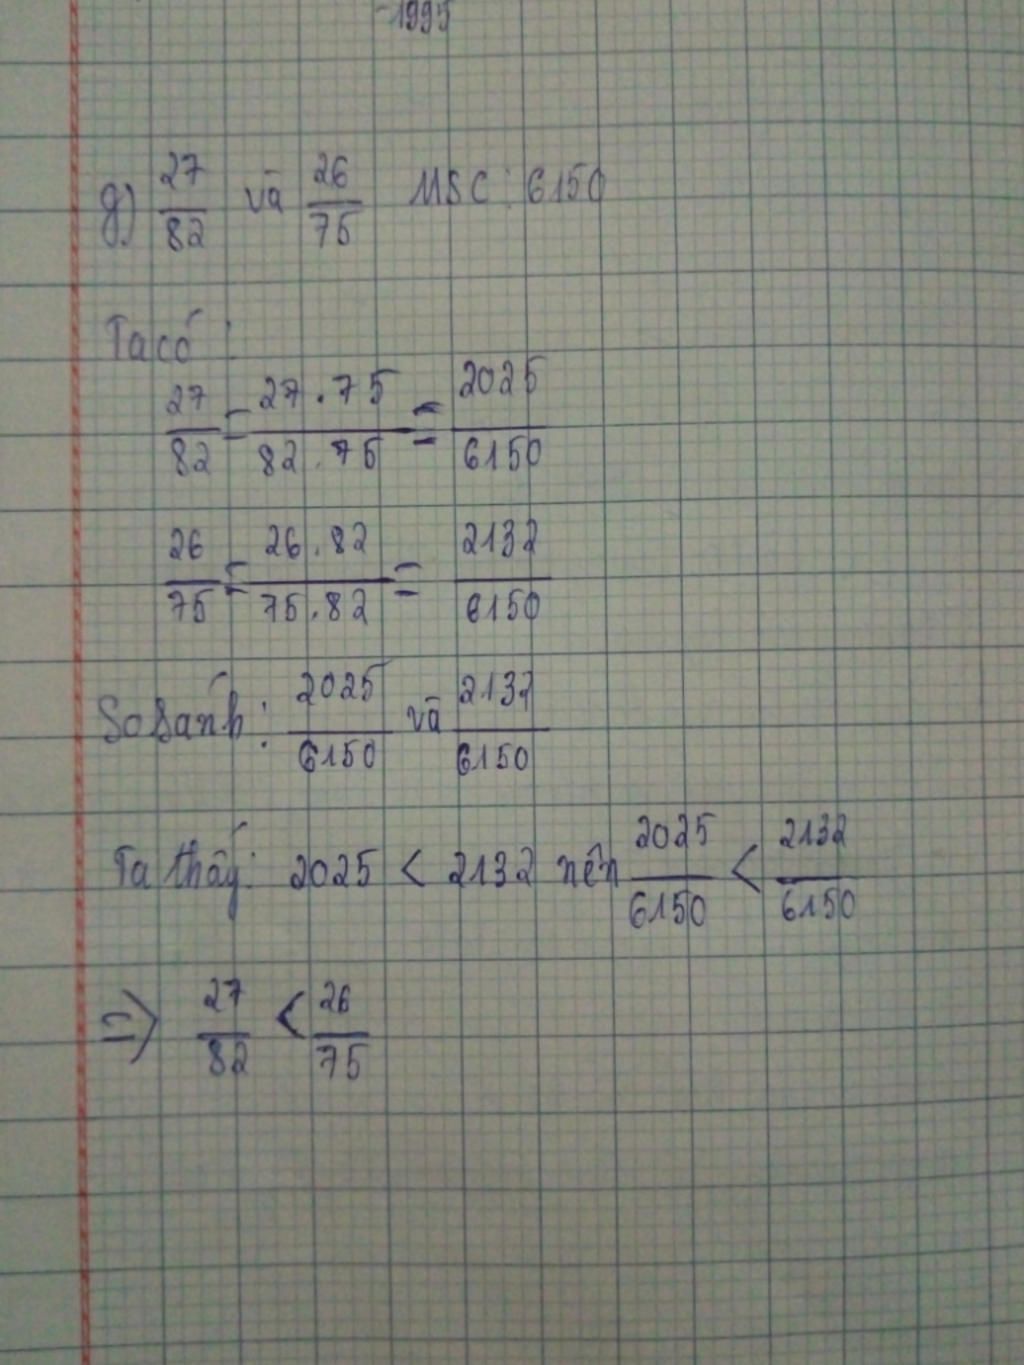 -1995
g) 27/82 và 26/75 MSC: 6150
Ta có:
27/82 = 27.75/82.75 = 2025/6150
26/75 = 26.82/75.82 = 2132/6150
So sánh: 2025/6150 và 2132/6150
Ta thấy: 2025 < 2132 nên 2025/6150 < 2132/6150
=> 27/82 < 26/75